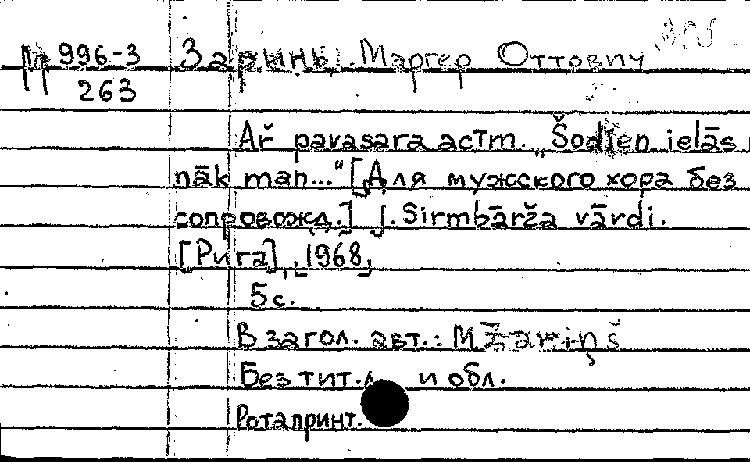 М 996-3 Зариньш Маргер Оттович
263
Ar pavasara acīm. „Šodien ielās
nāk man..." [Для мужского хора без
сопровожд.] J. Sirmbārža vārdi.
[Рига], 1968,
5 с.
В загол. авт.: M Zariņš
Без тит. л. и обл.
Ротапринт.